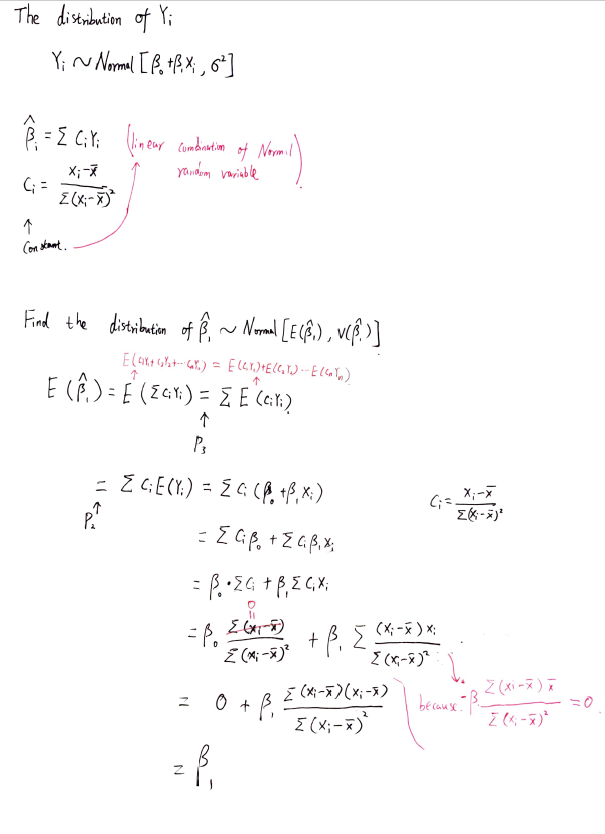 The distribution of Yᵢ
Yᵢ ~ Normal [β₀ + β₁Xᵢ , σ²]
β̂ᵢ = Σ CᵢYᵢ (linear combination of Normal random variable)
Cᵢ = (xᵢ - x̄) / Σ(xᵢ - x̄)²
↑
Constant.
Find the distribution of β̂₁ ~ Normal [E(β̂₁) , V(β̂₁)]
E(C₁Y₁ + C₂Y₂ + ... CₙYₙ) = E(C₁Y₁) + E(C₂Y₂) ... E(CₙYₙ)
E(β̂₁) = E(ΣCᵢYᵢ) = Σ E(CᵢYᵢ)
↑
P₃
= Σ CᵢE(Yᵢ) = Σ Cᵢ(β₀ + β₁Xᵢ) Cᵢ = (xᵢ - x̄) / Σ(xᵢ - x̄)²
↑
P₂
= Σ Cᵢβ₀ + Σ Cᵢβ₁xᵢ
= β₀ · ΣCᵢ + β₁ΣCᵢXᵢ
0
||
= β₀ Σ(xᵢ - x̄) / Σ(xᵢ - x̄)² + β₁ Σ (xᵢ - x̄)xᵢ / Σ(xᵢ - x̄)²
= 0 + β₁ Σ(xᵢ - x̄)(xᵢ - x̄) / Σ(xᵢ - x̄)² because -β₁ Σ(xᵢ - x̄)x̄ / Σ(xᵢ - x̄)² = 0
= β₁